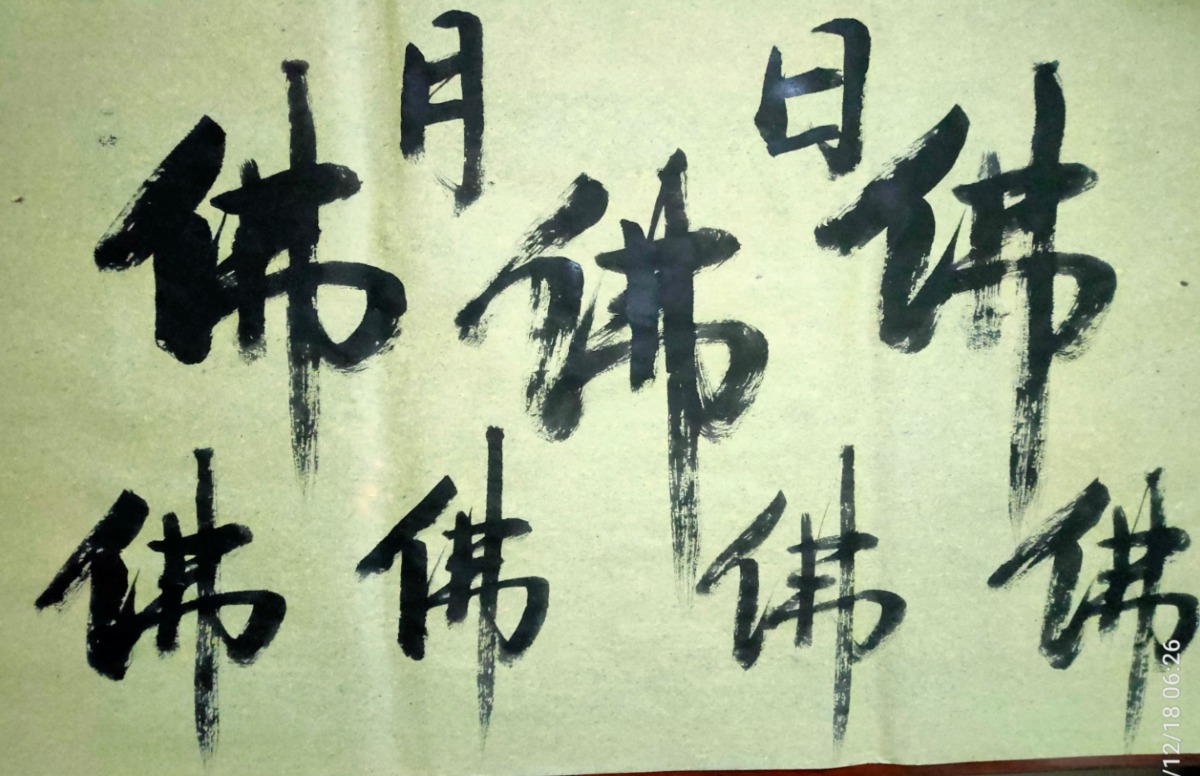 月 日
佛 佛 佛
佛 佛 佛 佛
/12/18 06:26